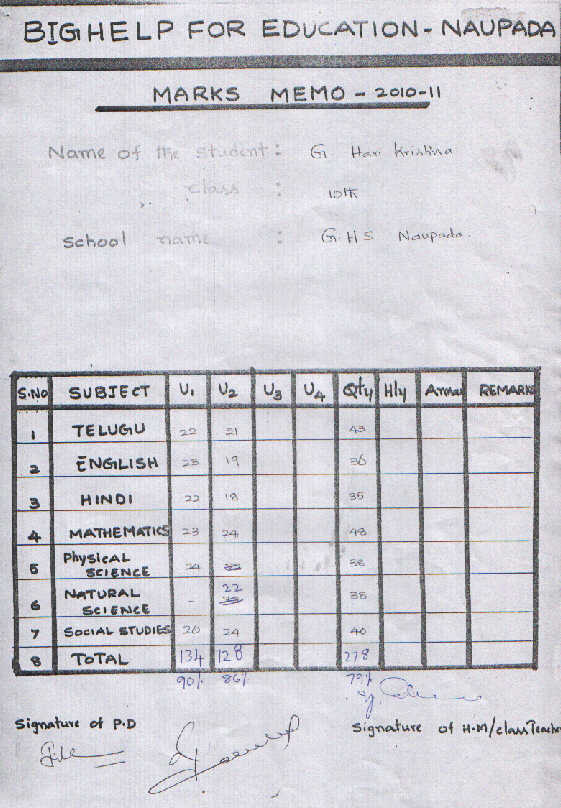 BIGHELP FOR EDUCATION - NAUPADA
MARKS MEMO - 2010-11
Name of the student : G. Hari Krishna
class : 10th
school name : G.H.S Naupada.
S.No SUBJECT U1 U2 U3 U4 Qty Hly Annual REMARKS
1 TELUGU 22 21 43
2 ENGLISH 23 19 36
3 HINDI 22 18 35
4 MATHEMATICS 23 24 48
5 Physical SCIENCE 24 38
6 NATURAL SCIENCE - 22 38
7 SOCIAL STUDIES 20 24 40
8 TOTAL 134 128 278
90% 86% 79%
Signature of P.D
Signature of H.M/class Teacher